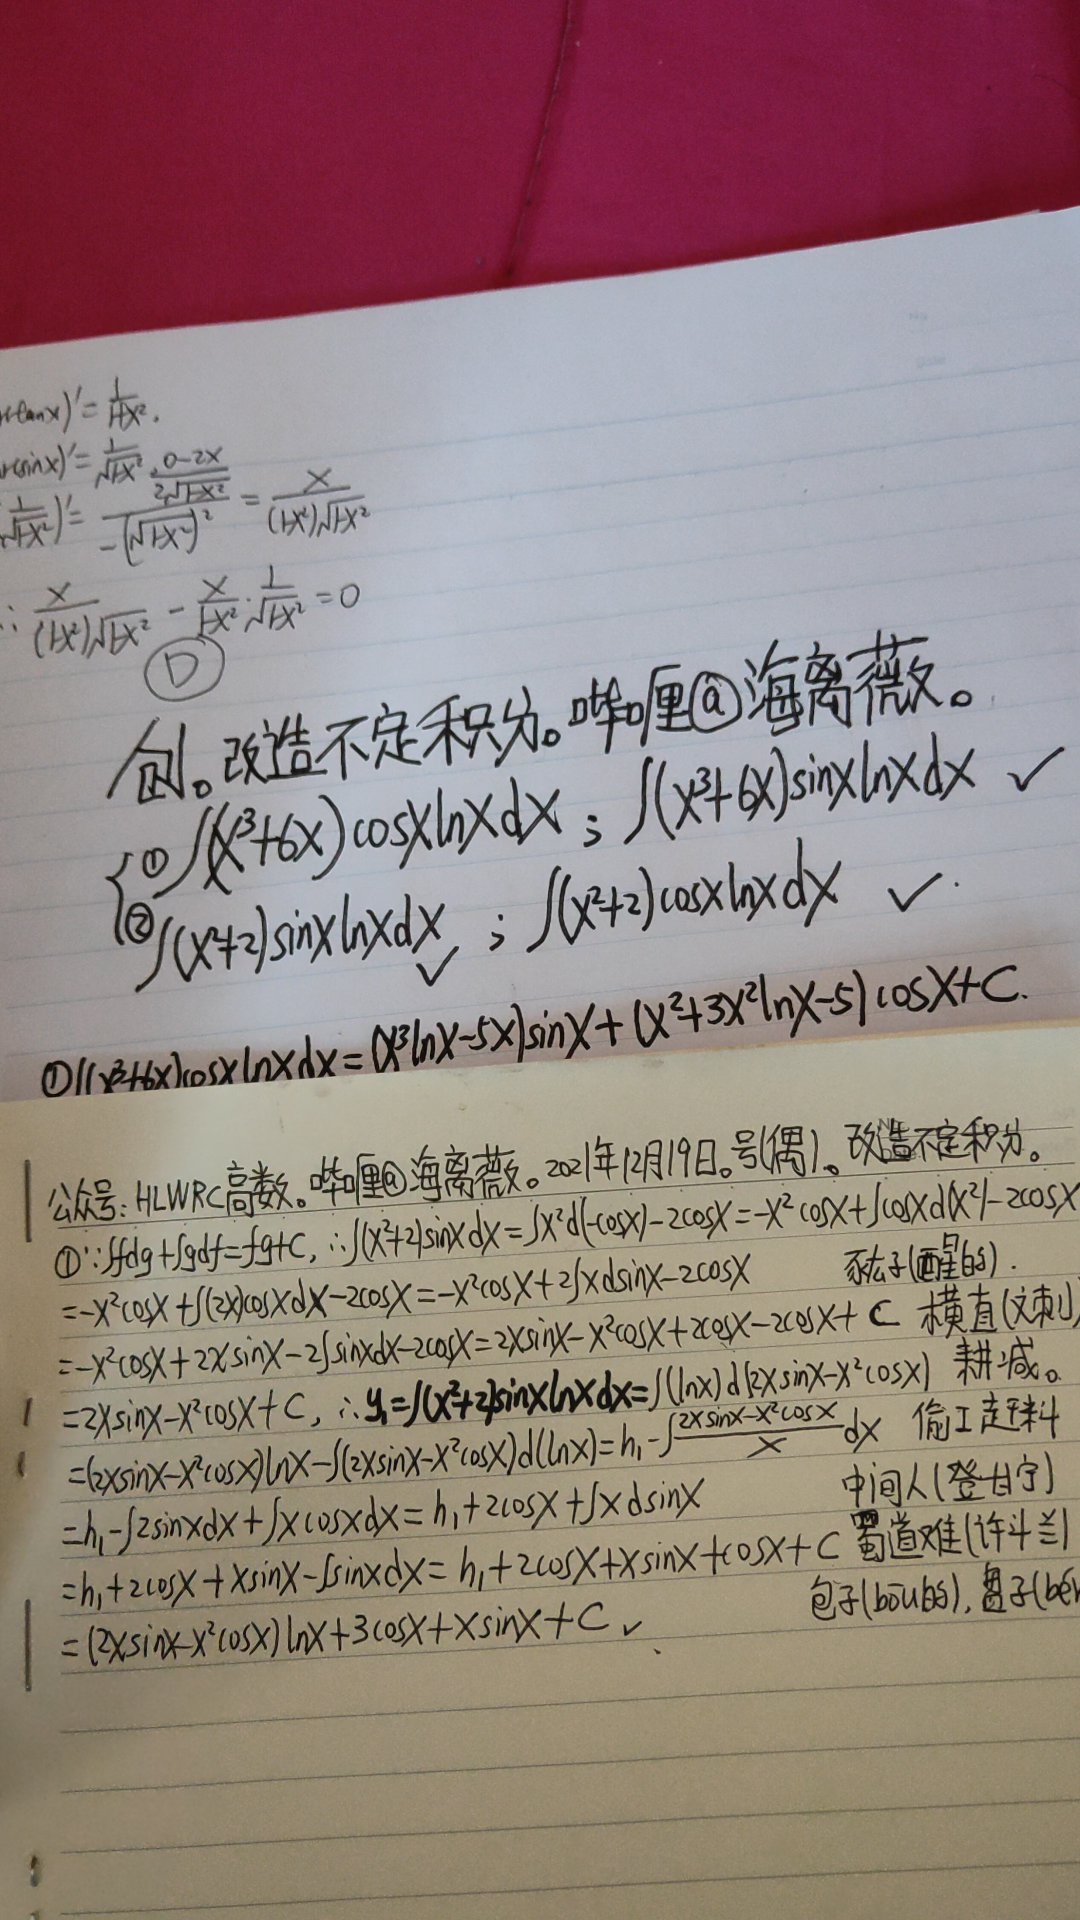 tanx)'=1/(1+x²).
sinx)'=1/√(1-x²)
1/√(1-x²))'= -((0-2x)/(2√(1-x²)))/(√(1-x²))² = x/((1-x²)√(1-x²))
∴ x/((1-x²)√(1-x²)) - x/(1-x²)·1/√(1-x²)=0
D
创。改造不定积分。哔哩@海离薇。
①∫(x³+6x)cosxlnxdx；∫(x³+6x)sinxlnxdx ✓
②∫(x²+2)sinxlnxdx ✓；∫(x²+2)cosxlnxdx ✓.
①∫(x³+6x)cosxlnxdx=(x³lnx-5x)sinx+(x²+3x²lnx-5)cosx+C.
公众号:HLWRC高数。哔哩@海离薇。2021年12月19日。号(偶)。改造不定积分。
①∵∫fdg+∫gdf=fg+C, ∴∫(x²+2)sinxdx=∫x²d(-cosx)-2cosx=-x²cosx+∫cosxd(x²)-2cosx
=-x²cosx+∫(2x)cosxdx-2cosx=-x²cosx+2∫xdsinx-2cosx (醒的).
=-x²cosx+2xsinx-2∫sinxdx-2cosx=2xsinx-x²cosx+2cosx-2cosx+C 横直(文刺)
=2xsinx-x²cosx+C, ∴y₁=∫(x²+2)sinxlnxdx=∫(lnx)d(2xsinx-x²cosx) 耕减。
=(2xsinx-x²cosx)lnx-∫(2xsinx-x²cosx)d(lnx)=h₁-∫(2xsinx-x²cosx)/x dx 偷工走料
=h₁-∫2sinxdx+∫xcosxdx=h₁+2cosx+∫xdsinx 中间人(登甘宁)
=h₁+2cosx+xsinx-∫sinxdx=h₁+2cosx+xsinx+cosx+C 蜀道难(许斗兰)
=(2xsinx-x²cosx)lnx+3cosx+xsinx+C ✓. 包子(bōu的),